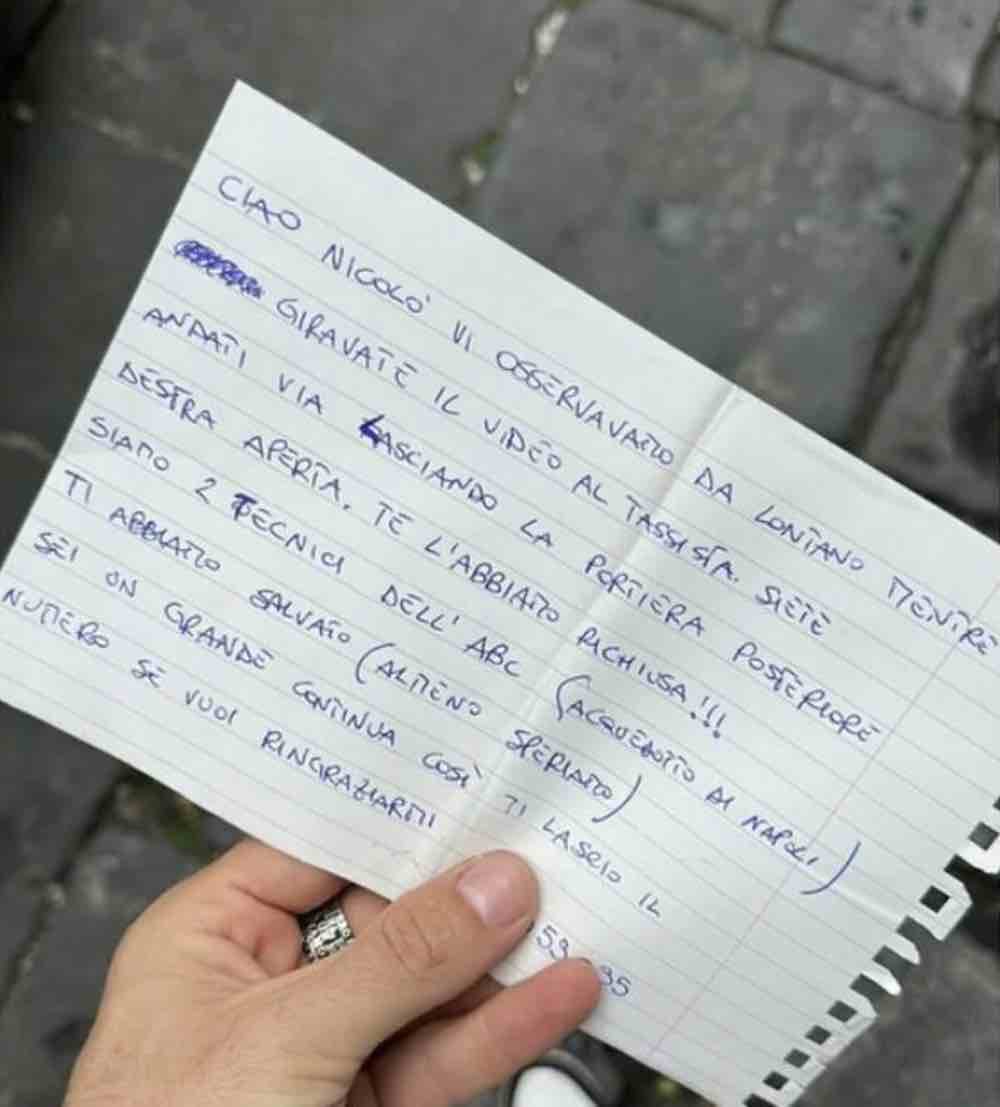 CIAO NICOLÒ VI OSSERVAVAMO DA LONTANO MENTRE
GIRAVATE IL VIDEO AL TASSISTA. SIETE
ANDATI VIA LASCIANDO LA PORTIERA POSTERIORE
DESTRA APERTA. TE L'ABBIAMO RICHIUSA!!!
SIAMO 2 TECNICI DELL'ABC (ACQUEDOTTO DI NAPOLI)
TI ABBIAMO SALVATO (ALMENO SPERIAMO)
SEI UN GRANDE CONTINUA COSÌ TI LASCIO IL
NUMERO SE VUOI RINGRAZIARMI